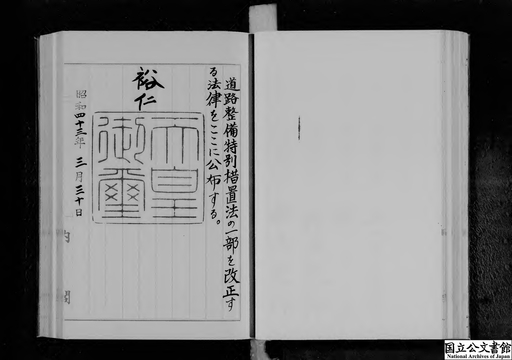 道路整備特別措置法の一部を改正す
る法律をここに公布する。
裕仁
天皇
御璽
昭和四十三年三月三十日
内閣
国立公文書館
National Archives of Japan